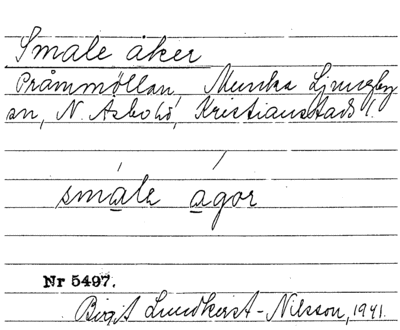 Smale åker
Pråmmöllan, Munka Ljungby
sn, N. Åsbo hd, Kristianstads l.
smalə agor
Nr 5497.
Birgit Lundkvist-Nilsson, 1941.